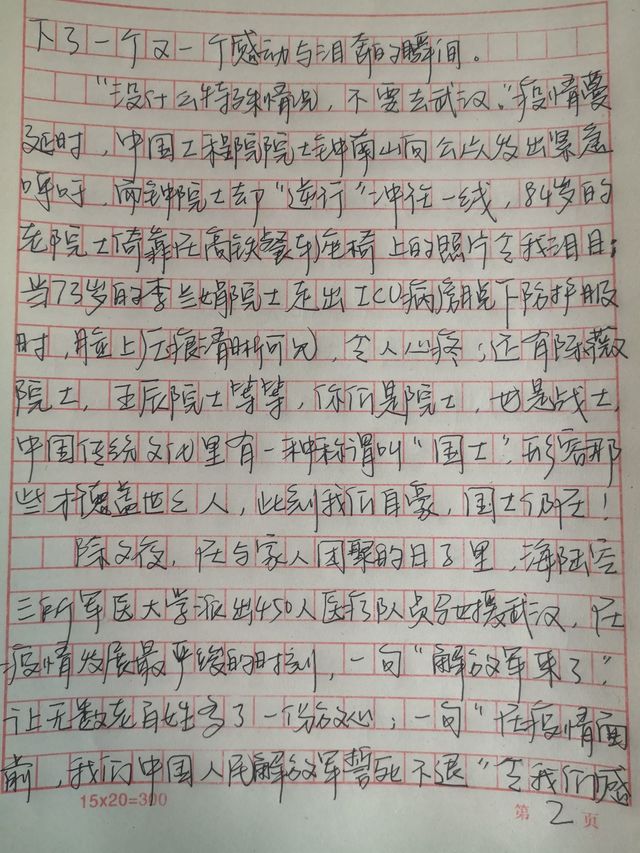 下了一个又一个感动与泪奔的瞬间。
“没什么特殊情况，不要去武汉。”疫情蔓
延时，中国工程院院士钟南山向公众发出紧急
呼吁，而钟院士却“逆行”冲往一线，84岁的
老院士倚靠在高铁餐车座椅上的照片令我泪目；
当73岁的李兰娟院士走出ICU病房脱下防护服
时，脸上压痕清晰可见，令人心疼；还有陈薇
院士，王辰院士等等，你们是院士，也是战士，
中国传统文化里有一种称谓叫“国士”，形容那
些才德盖世之人，此刻我们自豪，国士仍在！
除夕夜，在与家人团聚的日子里，海陆空
三所军医大学派出450人医疗队员驰援武汉，在
疫情发展最严峻的时刻，一句“解放军来了”
让无数老百姓多了一份放心；一句“在疫情面
前，我们中国人民解放军誓死不退”令我们感
15x20=300
第 2 页